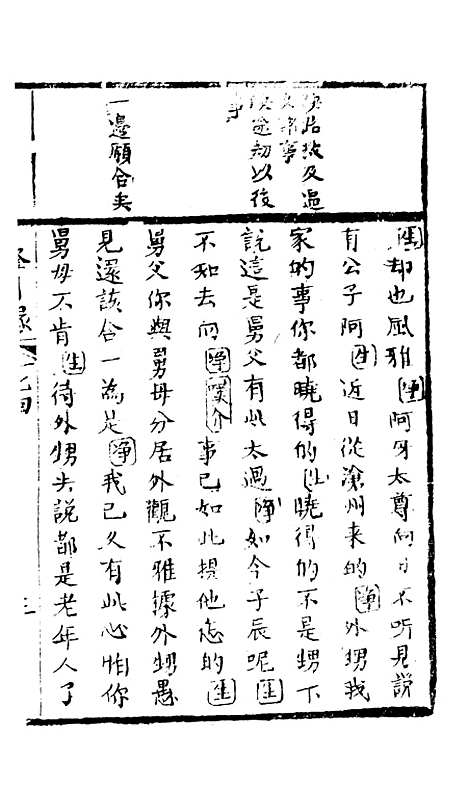 却也風雅[净]阿呀太尊向日不听見説
有公子阿[生]近日從滄州来的[净]外甥我
家的事你都曉得的[生]曉得的不是甥下
説這是舅父有此太過[净]如今子辰呢[生]
不知去向[净嘆介]事已如此提他怎的[生]
舅父你與舅母分居外觀不雅據外甥愚
見還該合一為是[净]我已久有此心怕你
舅母不肯[生]待外甥去説都是老年人了
以後
一邊願合矣